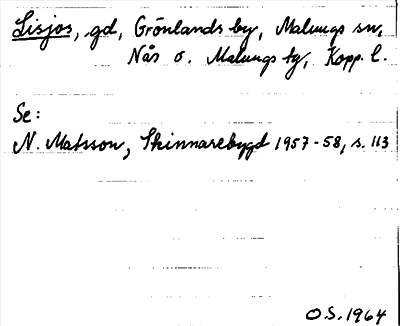 Lisjos, gd, Grönlands by, Malungs sn,
Nås o. Malungs tg, Kopp. l.
Se:
N. Matsson, Skinnarebygd 1957-58, s. 113
O.S. 1964